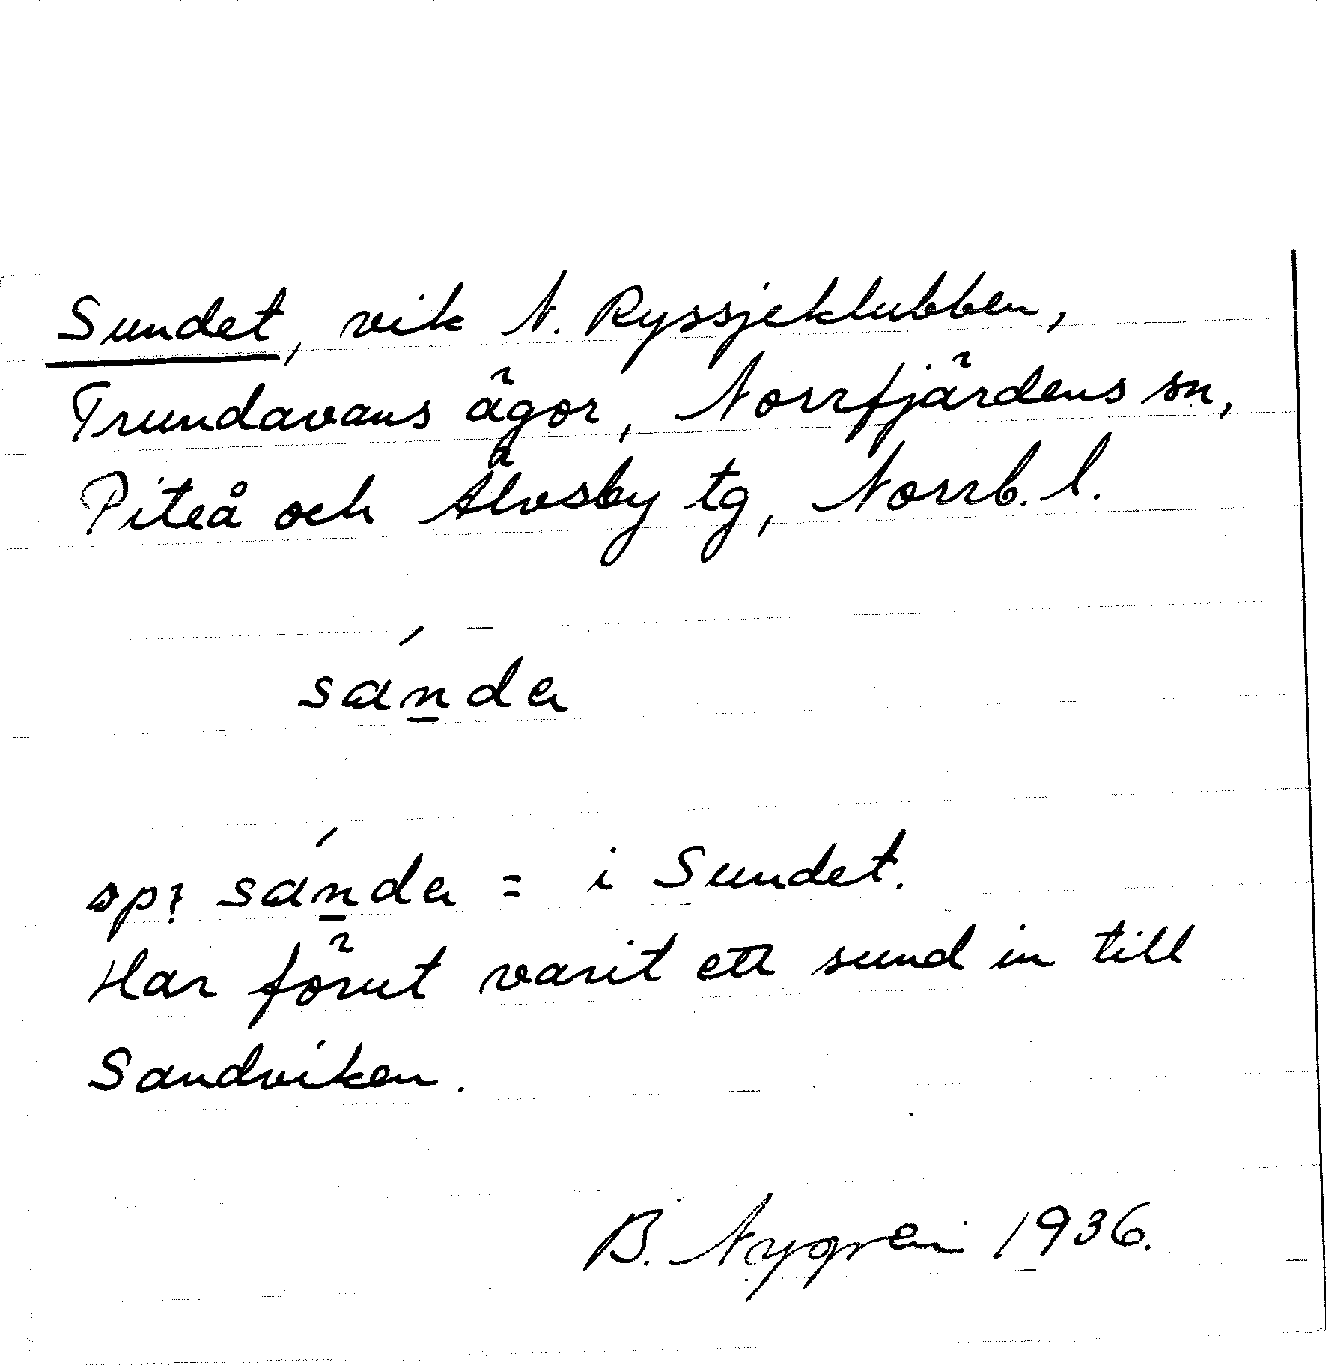 Sundet, vik N. Ryssjeklubben,
Trundavans ägor, Norrfjärdens sn,
Piteå och Älvsby tg, Norrb. l.
sánda
sánda = i Sundet.
Har förut varit ett sund in till
Sandviken.
B. Nygren 1936.